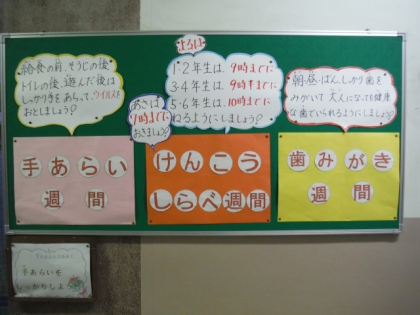 給食の前、そうじの後
トイレの後、遊んだ後は
しっかり手をあらって、ウイルスを
おとしましょう?
よるは
1・2年生は、9時までに
3・4年生は、9時半までに
5・6年生は、10時までに
ねるようにしましょう?
あさは
7時までに
おきましょう?
朝・昼・ばん、しっかり歯を
みがいて大人になっても健康
な歯でいられるようにしましょう?
手あらい
週間
けんこう
しらべ週間
歯みがき
週間
手あらいを
しっかりしよう